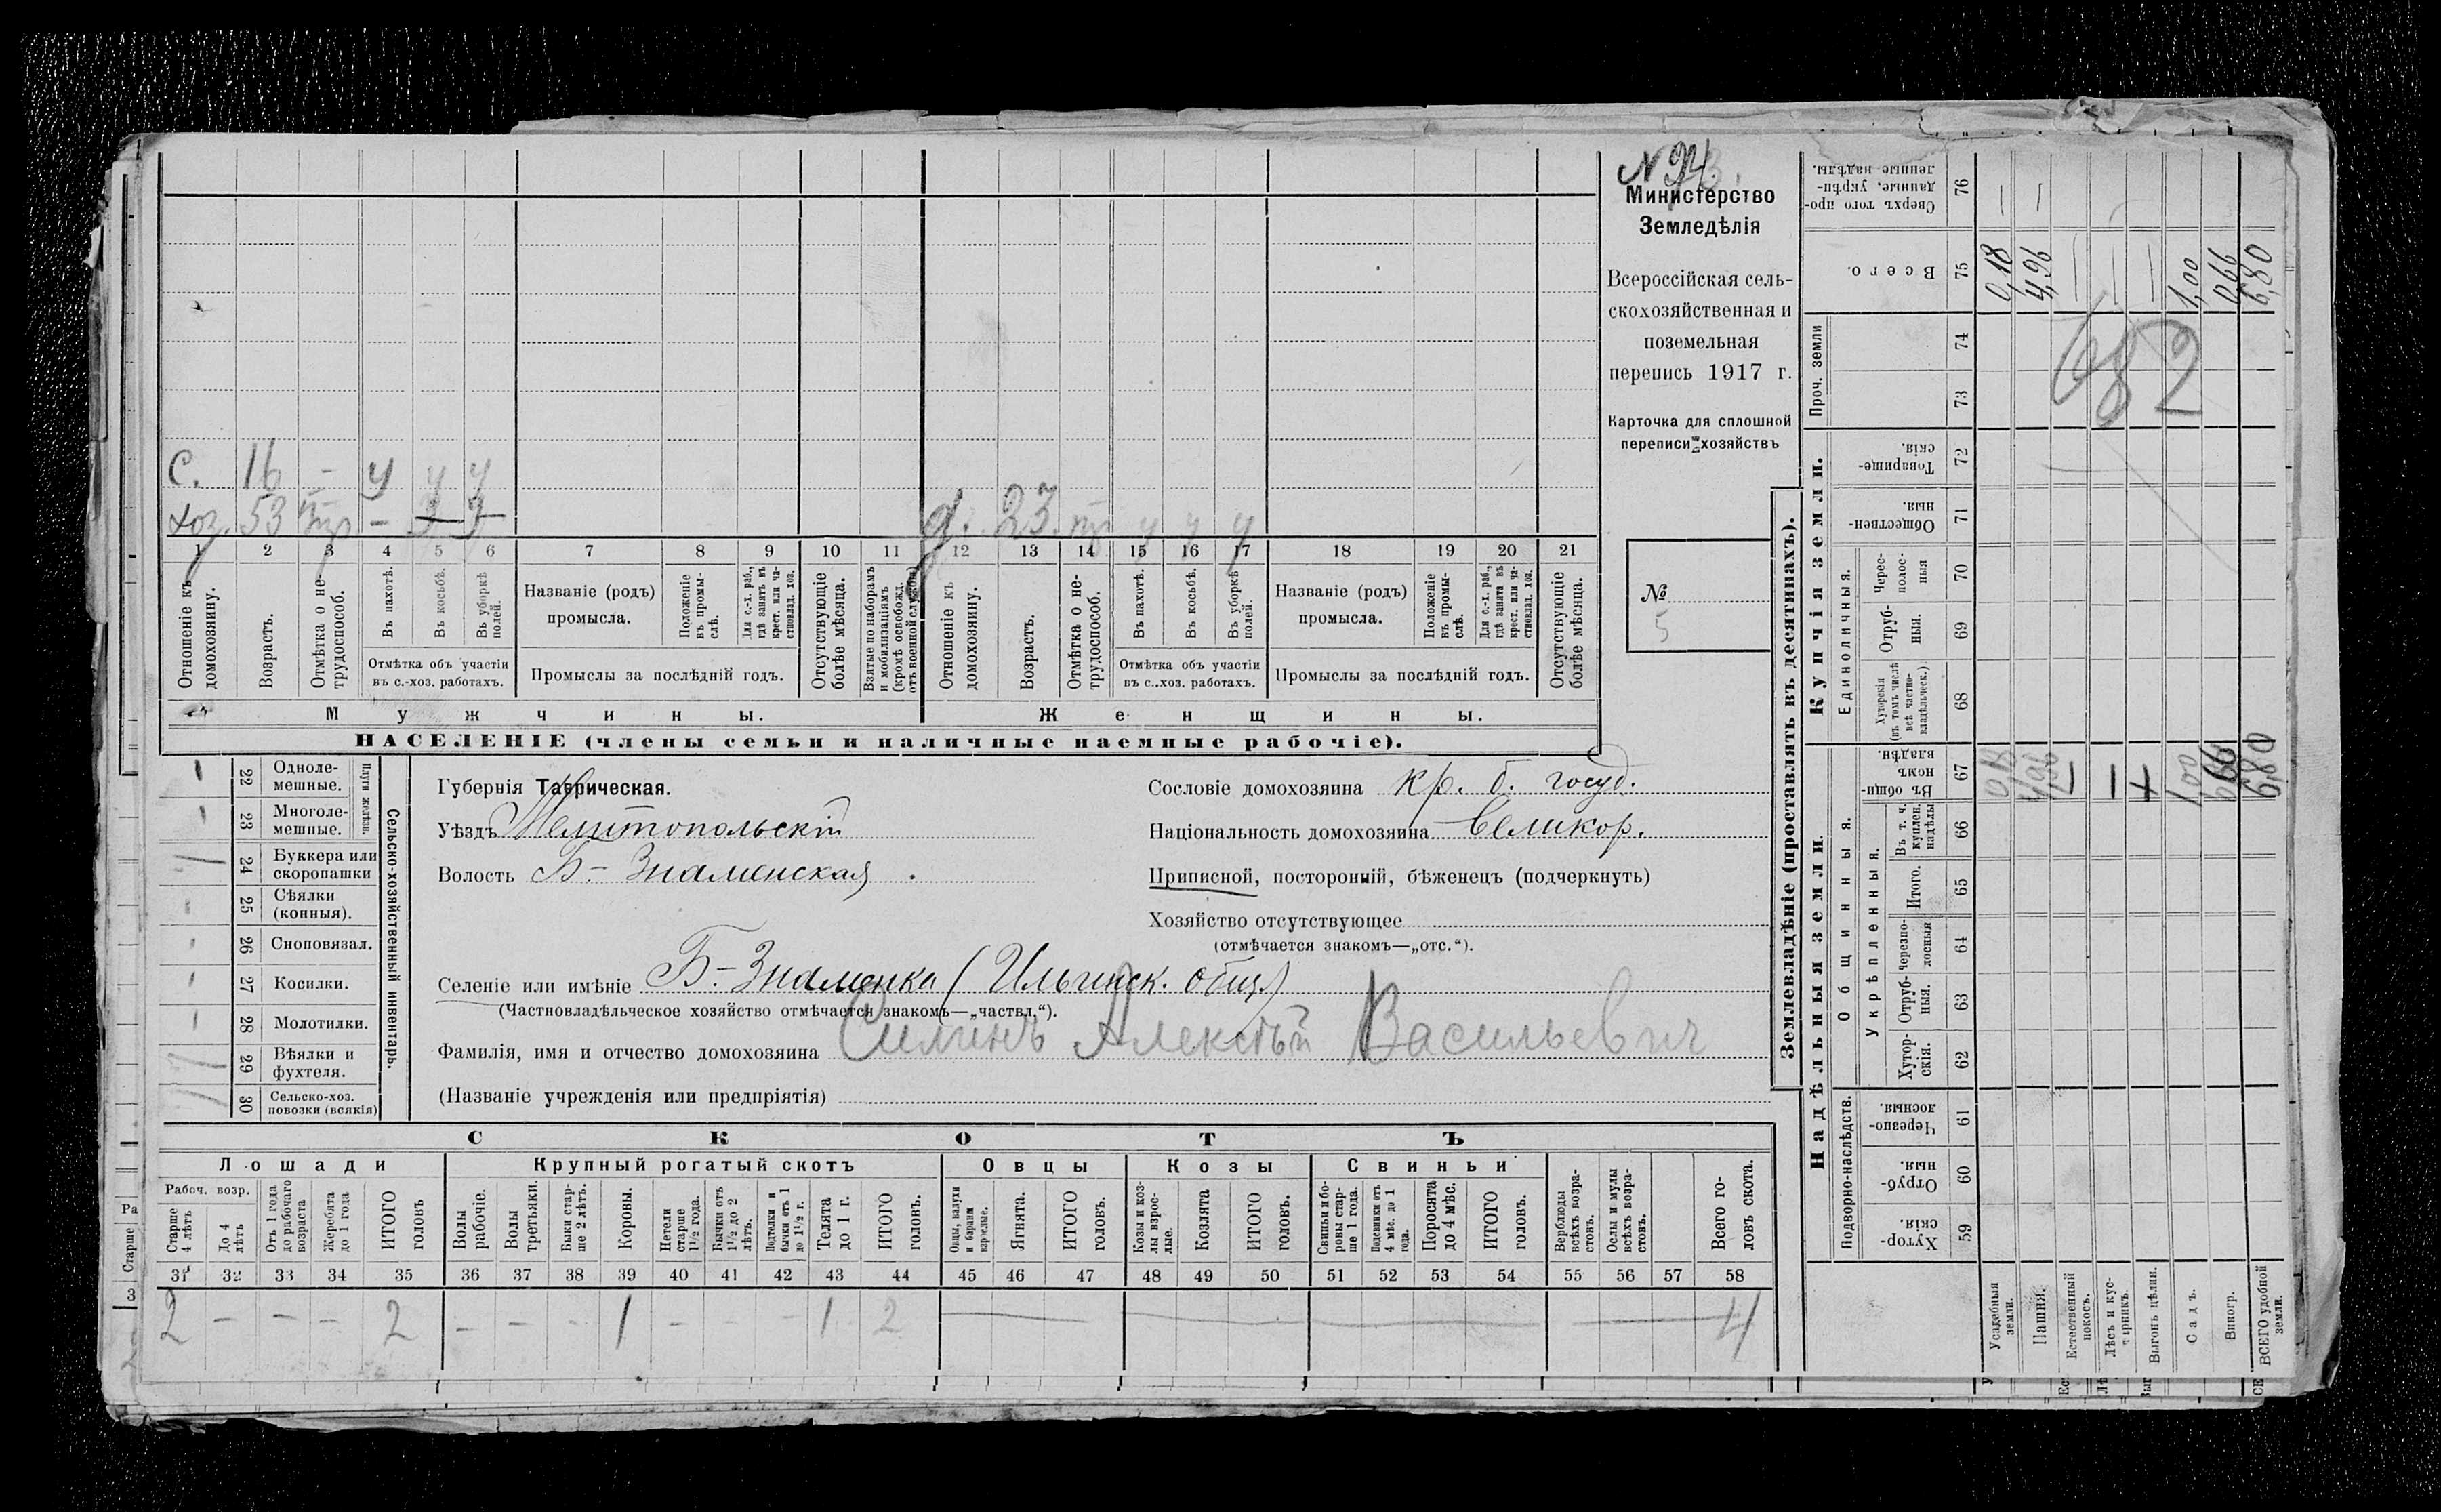 С. 16 - у у у
хоз. 53 - д. 23. у у у
1 2 3 4 5 6 7 8 9 10 11 12 13 14 15 16 17 18 19 20 21
Отношеніе къ домохозяину.
Возрастъ.
Отмѣтка о не-трудоспособ.
Въ пахотѣ.
Въ косьбѣ.
Въ уборкѣ полей.
Отмѣтка объ участіи
въ с.-хоз. работахъ.
Названіе (родъ)
промысла.
Положеніе въ промы-слѣ.
Для с.-х. раб., гдѣ занятъ въ крест. или ча-стновлад. хоз.
Промыслы за послѣдній годъ.
Отсутствующіе болѣе мѣсяца.
Взятые по наборамъ и мобилизаціямъ (кромѣ освобожд. отъ военной службы)
Отношеніе къ домохозяину.
Возрастъ.
Отмѣтка о не-трудоспособ.
Въ пахотѣ.
Въ косьбѣ.
Въ уборкѣ полей.
Отмѣтка объ участіи
въ с.-хоз. работахъ.
Названіе (родъ)
промысла.
Положеніе въ промы-слѣ.
Для с.-х. раб., гдѣ занята въ крест. или ча-стновлад. хоз.
Промыслы за послѣдній годъ.
Отсутствующіе болѣе мѣсяца.
Мужчины. Женщины.
НАСЕЛЕНІЕ (члены семьи и наличные наемные рабочіе).
Министерство
Земледѣлія
Всероссійская сель-
скохозяйственная и
поземельная
перепись 1917 г.
Карточка для сплошной
переписи хозяйствъ
№
5
22 Одноле-мешные.
23 Многоле-мешные.
Плуги желѣзн.
24 Буккера или скоропашки
25 Сѣялки (конныя).
26 Сноповязал.
27 Косилки.
28 Молотилки.
29 Вѣялки и фухтеля.
30 Сельско-хоз. повозки (всякія)
Сельско-хозяйственный инвентарь.
Губернія Таврическая.
Уѣздъ Мелитопольскій
Волость Б-Знаменская
Сословіе домохозяина кр. б. госуд.
Національность домохозяина великор.
Приписной, посторонній, бѣженецъ (подчеркнуть)
Хозяйство отсутствующее
(отмѣчается знакомъ—„отс.“).
Селеніе или имѣніе Б-Знаменка (Ильинск. общ.)
(Частновладѣльческое хозяйство отмѣчается знакомъ—„частвл.“).
Фамилія, имя и отчество домохозяина Силинъ Алексѣй Васильевич
(Названіе учрежденія или предпріятія)
СКОТЪ
Лошади Крупный рогатый скотъ Овцы Козы Свиньи
Рабоч. возр.
Старше 4 лѣтъ
До 4 лѣтъ
Отъ 1 года до рабочаго возраста
Жеребята до 1 года
ИТОГО головъ
Волы рабочіе.
Волы третьяки.
Быки стар-ше 2 лѣтъ.
Коровы.
Нетели старше 1½ года.
Бычки отъ 1½ до 2 лѣтъ.
Подтелки и бычки отъ 1 до 1½ г.
Телята до 1 г.
ИТОГО головъ.
Овцы, валухи и бараны взрослые.
Ягнята.
ИТОГО головъ.
Козы и коз-лы взрос-лые.
Козлята
ИТОГО головъ.
Свиньи и бо-ровы стар-ше 1 года.
Подсвинки отъ 4 мѣс. до 1 года.
Поросята до 4 мѣс.
ИТОГО головъ.
Верблюды всѣхъ возра-стовъ.
Ослы и мулы всѣхъ возра-стовъ.
Всего го-ловъ скота.
31 32 33 34 35 36 37 38 39 40 41 42 43 44 45 46 47 48 49 50 51 52 53 54 55 56 57 58
2 - - - 2 - - - 1 - - - 1 2 4
Землевладѣніе (проставлять въ десятинахъ).
Надѣльныя земли. Купчія земли. Проч. земли
Подворно-наслѣдств. Общинныя. Единоличныя.
Укрѣпленныя.
Хутор-скія. 59
Отруб-ныя. 60
Черезпо-лосныя. 61
Хутор-скія. 62
Отруб-ныя. 63
Черезпо-лосныя 64
Итого. 65
Въ т. ч. куплен. надѣлы 66
Въ общин-номъ владѣн. 67
Хуторскія (въ томъ числѣ всѣ частно-владѣльческ.). 68
Отруб-ныя. 69
Черес-полос-ныя 70
Обществен-ныя. 71
Товарище-скія. 72
73
74
Всего. 75
Сверхъ того про-данные, укрѣп-ленные надѣлы. 76
Усадебныя земли. 0,18 0,18 —
Пашня. 4,96 4,96 —
Естественный покосъ. — —
Лѣсъ и кус-тарникъ. — —
Выгонъ цѣлин. — —
Садъ. 1,00 1,00
Виногр. 0,66 0,66
ВСЕГО удобной земли. 6,80 6,80
682